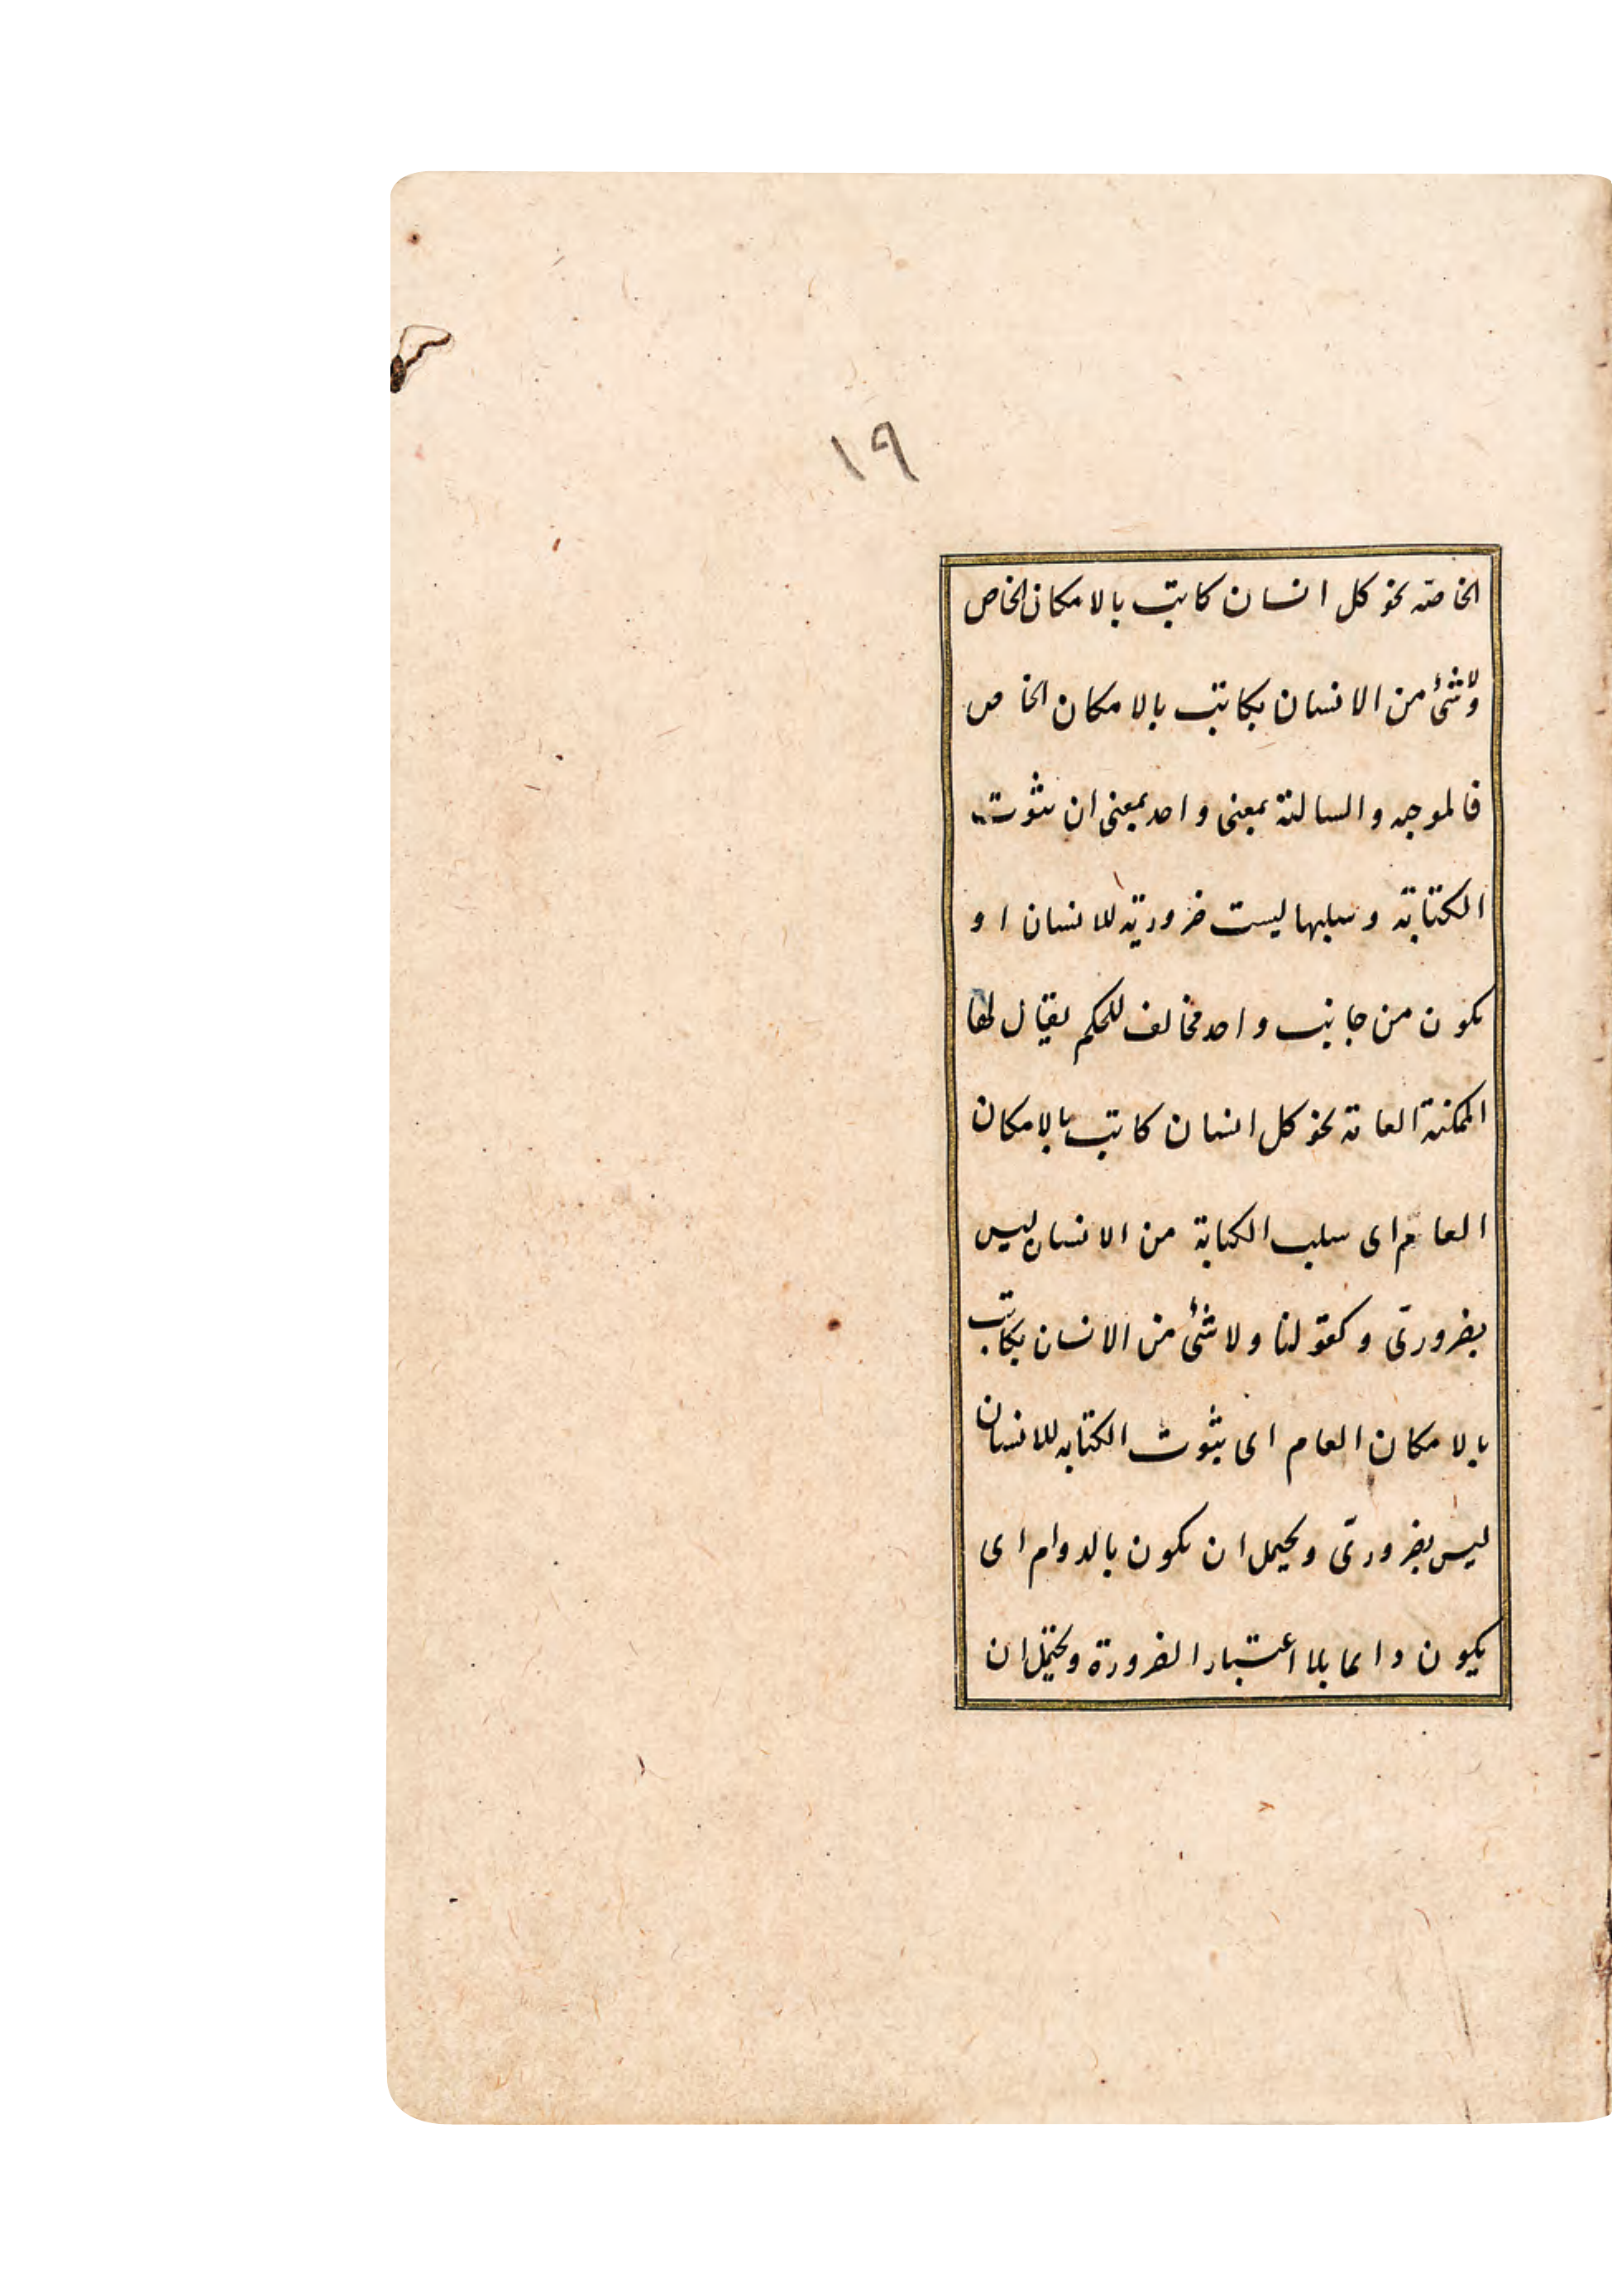 ١٩
الخاصّه نحو كل انسان كاتب بالامكان الخاص
ولا شئ من الانسان بكاتب بالامكان الخاص
فالموجبه والسالبة بمعنى واحد بمعنى ان ثبوت
الكتابة وسلبها ليست ضرورية للانسان او
يكون من جانب واحد مخالف للحكم يقال لها
الممكنة العامة نحو كل انسان كاتب بالامكان
العام اى سلب الكتابة من الانسان ليس
بضرورىّ وكقولنا ولا شئ من الانسان بكاتب
بالامكان العام اى ثبوت الكتابه للانسان
ليس بضرورىّ ويحتمل ان يكون بالدوام اى
يكون دائما بلا اعتبار الضرورة ويحتمل ان